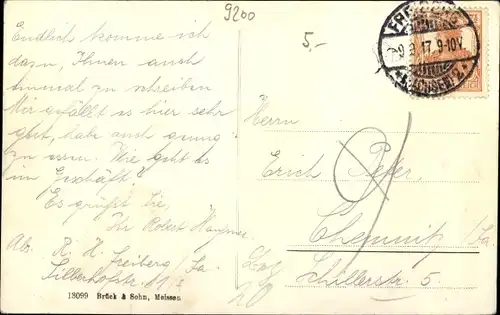 9200
5,-
Endlich komme ich
dazu, Ihnen auch
einmal zu schreiben
Mir gefällt es hier sehr
gut, hab auch genug
zu essen. Wie geht es
im Geschäft?
Es grüßt Sie,
Ihr Robert
Abs. R. H. Freiberg Sa.
Silberhofstr.
18099 Brück & Sohn, Meissen
FREIBERG
9.3.17. 9-10V
* (SACHSEN) 2 *
Herrn
Erich
Chemnitz i/Sa
Schillerstr. 5.